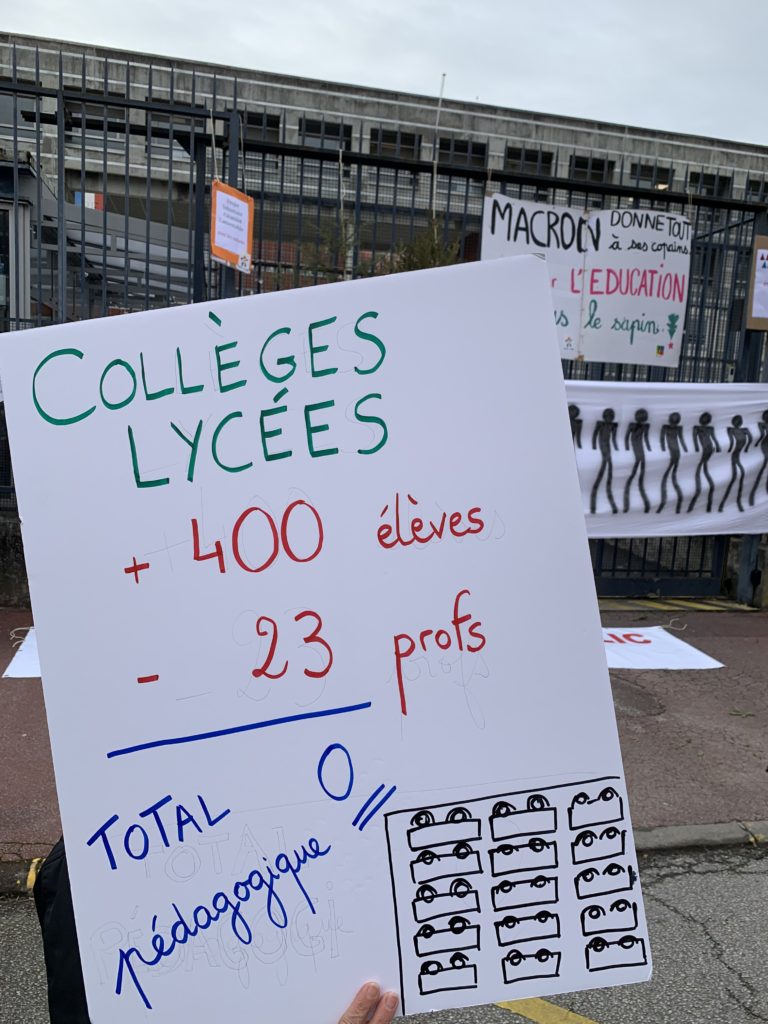 MACRON DONNE TOUT
à ses copains
L'EDUCATION
le sapin.
COLLÈGES
LYCÉES
+ 400 élèves
- 23 profs
TOTAL 0
pédagogique
LIC